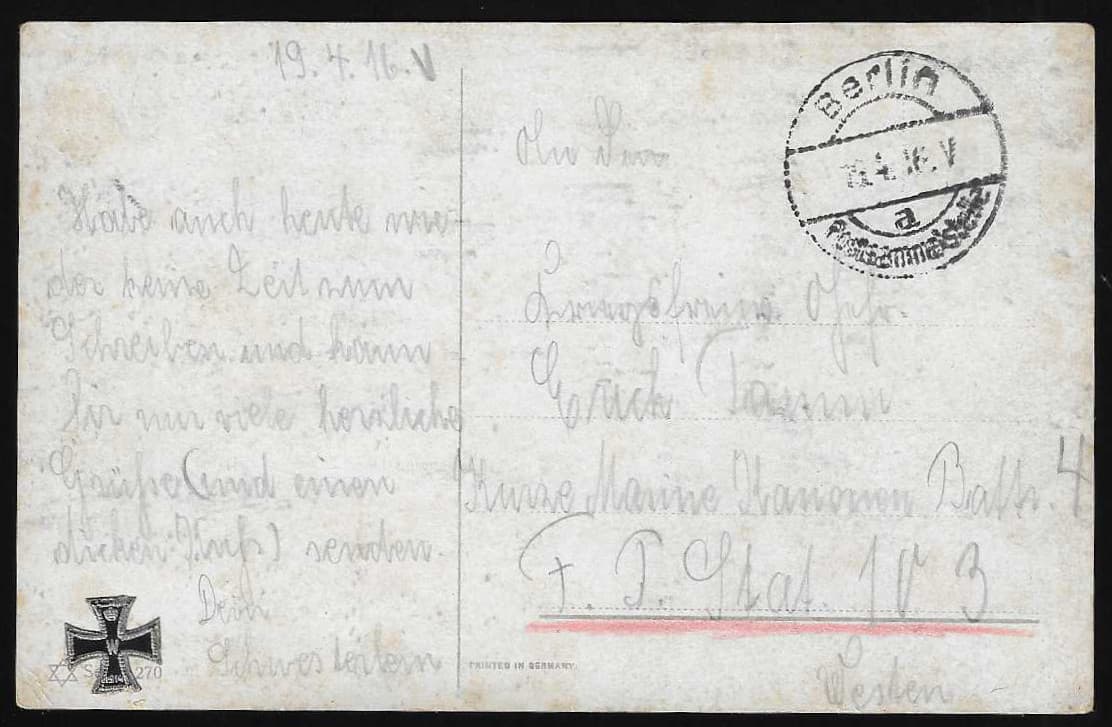 19. 4. 16. V
Habe auch heute wie-
der keine Zeit zum
Schreiben und kann
Dir nur viele herzliche
Grüße (und einen
dicken Kuß) senden.
Dein
Schwesterlein
Berlin
4.16. V
a
Postsammelstelle
An den
Kriegsfreiw. Gefr.
Erich Tamm
Kurze Marine Kanonen Battr. 4
F. P. Stat. 103
Westen
PRINTED IN GERMANY.
270
W
1914